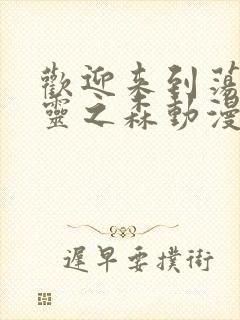 歡迎来到蕩
靈之森動漫
遲早要撲街